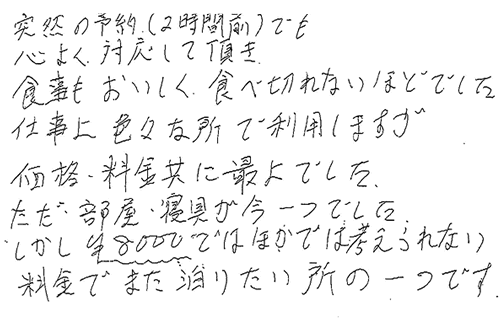 突然の予約.(2時間前)でも
心よく対応して頂き.
食事もおいしく.食べ切れないほどでした
仕事上色々な所で利用しますが
価格・料金共に最上でした.
ただ・部屋・寝具が今一つでした.
しかし¥8000ではほかでは考えられない
料金でまた泊りたい所の一つです.